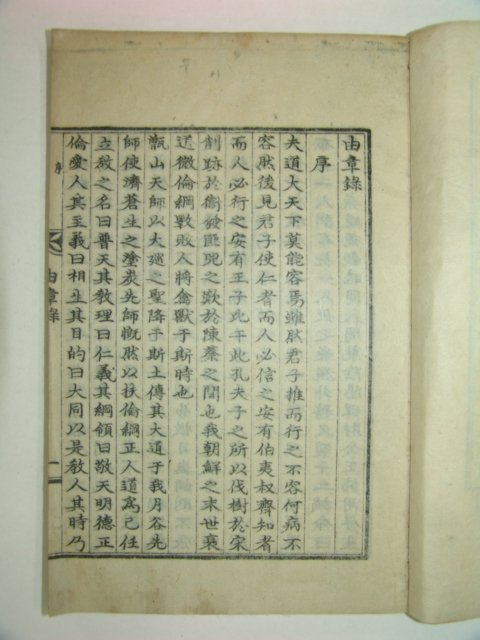 由章錄
序
夫道大天下莫能容焉雖然君子推而行之不容何病不
容然後見君子使仁者而人必信之安有伯夷叔齊知者
而人必行之安有王子比干此孔夫子之所以伐樹於宋
削跡於衛發匪兕之歎於陳蔡之間也我朝鮮之末世衰
道微倫綱斁敗人將禽獸于斯時也
甑山天師以大巡之聖降于斯土傳其大道于我月谷先
師使濟蒼生之塗炭先師慨然以扶倫綱正人道爲己任
立敎之名曰普天其敎理曰仁義其綱領曰敬天明德正
倫愛人其主義曰相生其目的曰大同以是敎人其時乃
由章錄
序
一